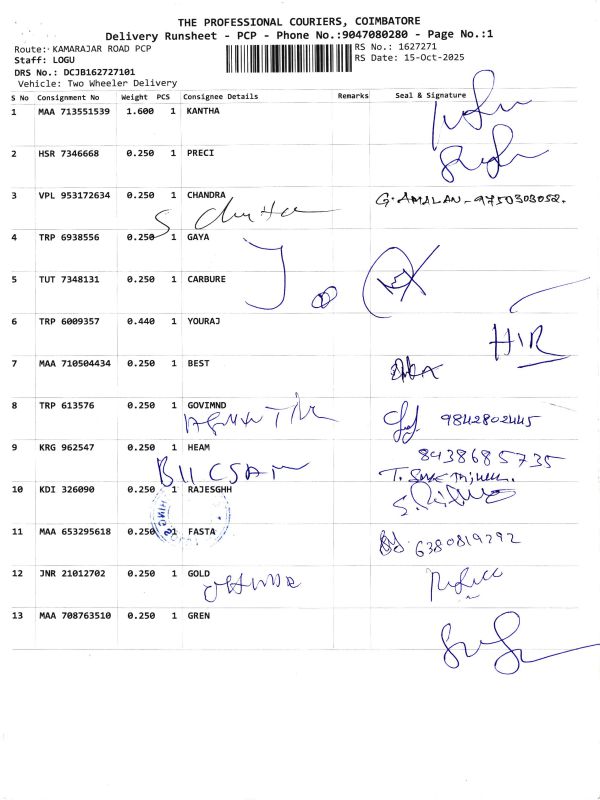 THE PROFESSIONAL COURIERS, COIMBATORE
Delivery Runsheet - PCP - Phone No.:9047080280 - Page No.:1
Route: KAMARAJAR ROAD PCP RS No.: 1627271
Staff: LOGU RS Date: 15-Oct-2025
DRS No.: DCJB162727101
Vehicle: Two Wheeler Delivery
S No Consignment No Weight PCS Consignee Details Remarks Seal & Signature
1 MAA 713551539 1.600 1 KANTHA
2 HSR 7346668 0.250 1 PRECI
3 VPL 953172634 0.250 1 CHANDRA G. AMALAN - 9750303052.
4 TRP 6938556 0.250 1 GAYA
5 TUT 7348131 0.250 1 CARBURE
6 TRP 6009357 0.440 1 YOURAJ
HIR
7 MAA 710504434 0.250 1 BEST
8 TRP 613576 0.250 1 GOVIMND
9842802445
9 KRG 962547 0.250 1 HEAM 8438685735
10 KDI 326090 0.250 1 RAJESGHH
11 MAA 653295618 0.250 1 FASTA 6380819292
12 JNR 21012702 0.250 1 GOLD
13 MAA 708763510 0.250 1 GREN